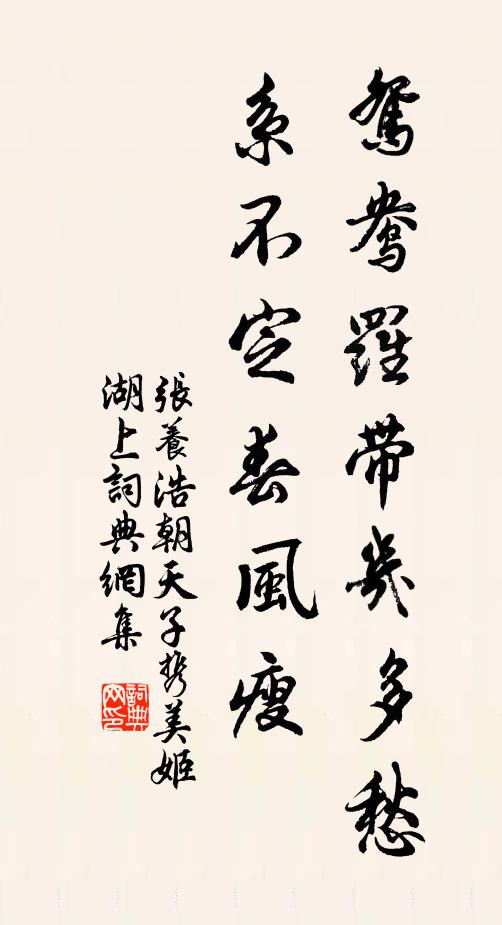 鴛鴦羅帶幾多愁
系不定春風瘦
張養浩朝天子携美姬
湖上詞典網集
詞典
网印